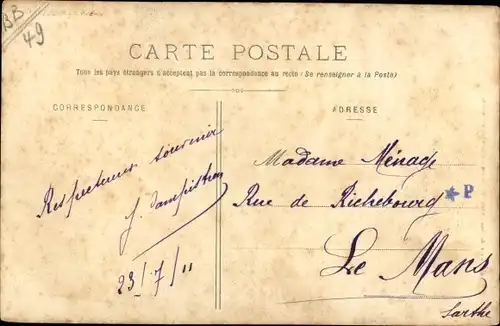 BB
49
CARTE POSTALE
Tous les pays étrangers n'acceptent pas la correspondance au recto (Se renseigner à la Poste)
CORRESPONDANCE
Respectueux souvenir
23/7/11
ADRESSE
Madame Ménage
Rue de Richebourg
P
Le Mans
Sarthe